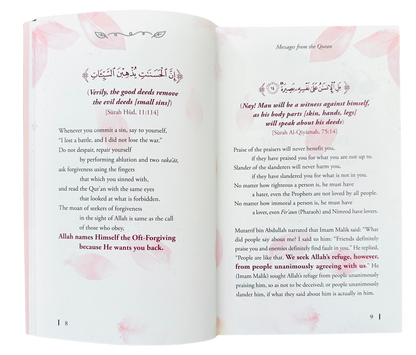 ﴿إِنَّ الْحَسَنَاتِ يُذْهِبْنَ السَّيِّئَاتِ﴾
(Verily, the good deeds remove
the evil deeds [small sins])
[Surah Hūd, 11:114]
Whenever you commit a sin, say to yourself,
"I lost a battle, and I did not lose the war."
Do not despair, repair yourself
by performing ablution and two raka'āt,
ask forgiveness using the fingers
that which you sinned with,
and read the Qur'an with the same eyes
that looked at what is forbidden.
The moan of seekers of forgiveness
in the sight of Allah is same as the call
of those who obey,
Allah names Himself the Oft-Forgiving
because He wants you back.
8
Messages from the Quran
﴿بَلِ الْإِنْسَانُ عَلَىٰ نَفْسِهِ بَصِيرَةٌ ١٤﴾
(Nay! Man will be a witness against himself,
as his body parts [skin, hands, legs]
will speak about his deeds)
[Surah Al-Qiyamah, 75:14]
Praise of the praisers will never benefit you,
if they have praised you for what you are not up to.
Slander of the slanderers will never harm you,
if they have slandered you for what is not in you.
No matter how righteous a person is, he must have
a hater, even the Prophets are not loved by all people.
No matter how immoral a person is, he must have
a lover, even Fir'aun (Pharaoh) and Nimrod have lovers.
Mutarrif bin Abdullah narrated that Imam Malik said: "What
did people say about me? I said to him: "Friends definitely
praise you and enemies definitely find fault in you." He replied,
"People are like that. We seek Allah's refuge, however,
from people unanimously agreeing with us." He
(Imam Malik) sought Allah's refuge from people unanimously
praising him, so as not to be deceived; or people unanimously
slander him, if what they said about him is actually in him.
9